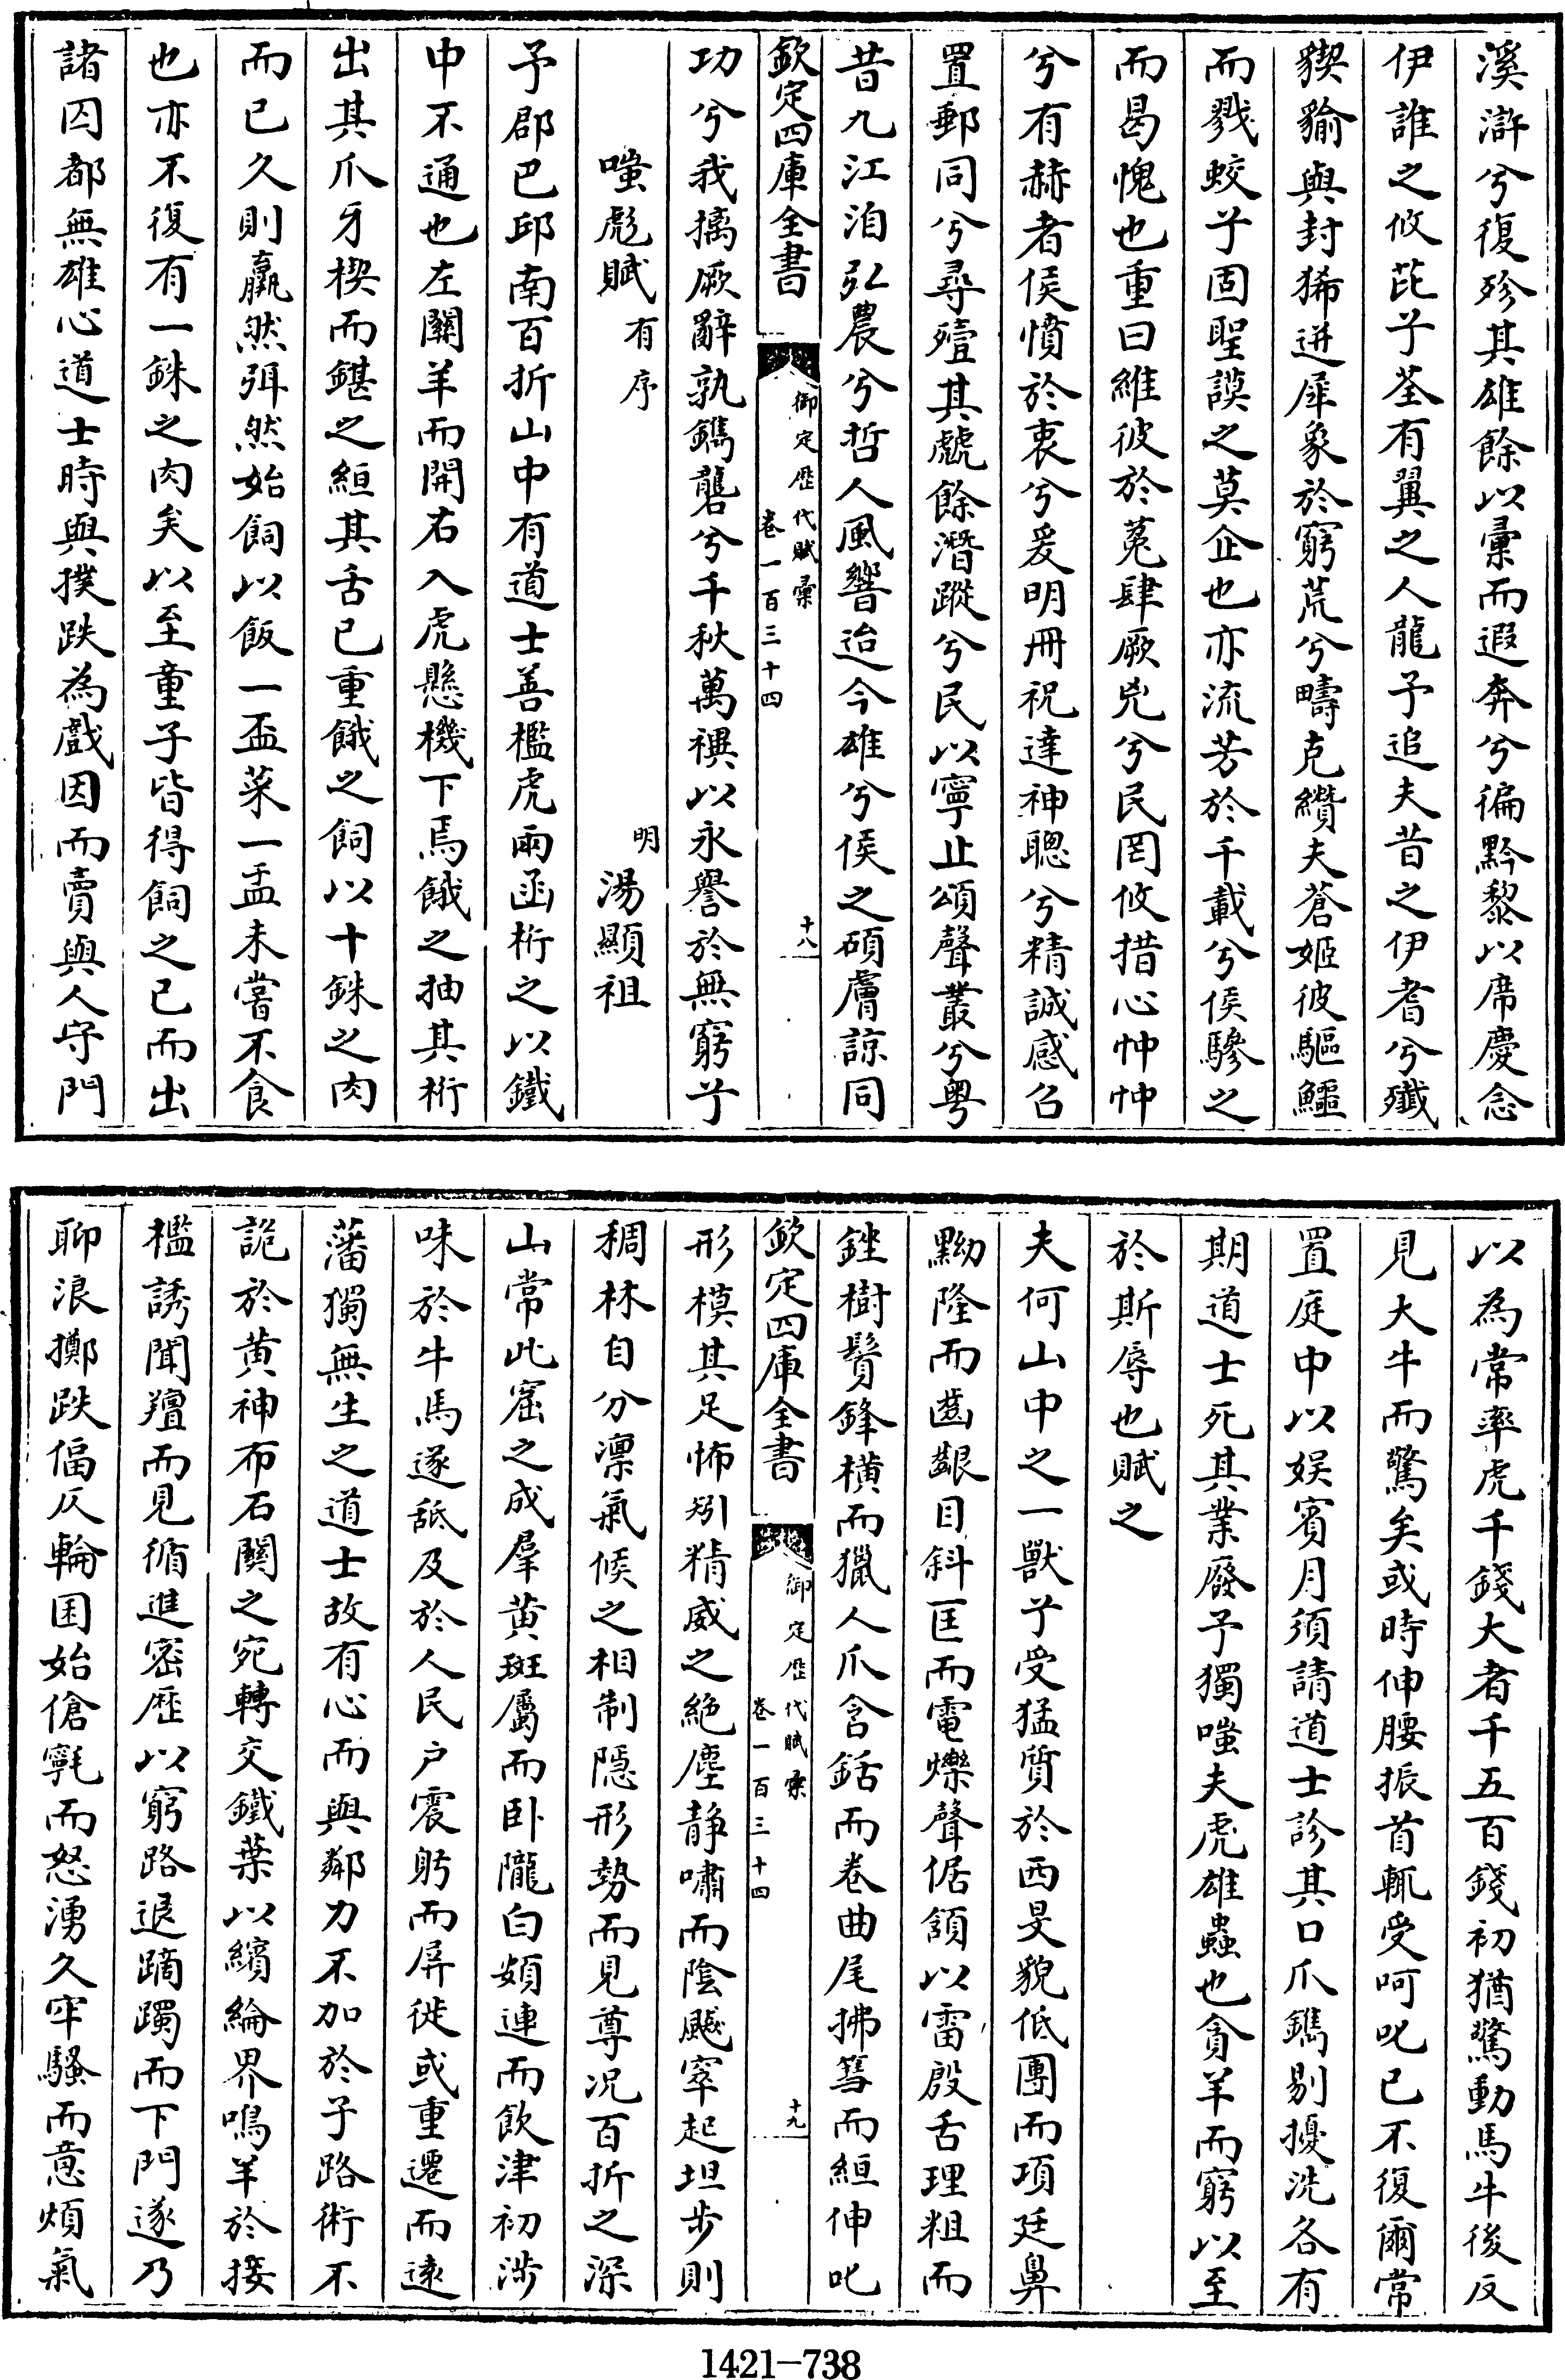 溪滸兮復殄其雄餘以彚而遐奔兮徧黔黎以席慶念
伊誰之攸芘兮荃有翼之人龍予追夫昔之伊耆兮殲
貏貐與封狶迸犀象於窮荒兮疇克纘夫蒼姬彼驅鱷
而戮蛟兮固聖謨之莫企也亦流芳於千載兮侯驂之
而曷愧也重曰維彼於菟肆厥兇兮民罔攸措心忡忡
兮有赫者侯憤於衷兮爰明冊祝達神聰兮精誠感召
置郵同兮尋殪其虣餘潛蹤兮民以寧止頌聲叢兮粤
昔九江洎弘農兮哲人風響迨今雄兮侯之碩膚諒同
欽定四庫全書
御定歴代賦彚
卷一百三十四
十八
功兮我摛厥辭孰鐫礱兮千秋萬禩以永譽於無窮兮
嗤彪賦有序
明湯顯祖
予郡巴邱南百折山中有道士善檻虎兩函桁之以鐵
中不通也左關羊而開右入虎懸機下焉餓之抽其桁
出其爪牙楔而鍖之絙其舌已重餓之飼以十銖之肉
而已久則羸然弭然始飼以飯一盃菜一盂未嘗不食
也亦不復有一銖之肉矣以至童子皆得飼之已而出
諸囚都無雄心道士時與撲跌為戲因而賣與人守門
以為常率虎千錢大者千五百錢初猶驚動馬牛後反
見大牛而驚矣或時伸腰振首輒受呵叱已不復爾常
置庭中以娱賓月須請道士診其口爪鐫剔擾洗各有
期道士死其業廢予獨嗤夫虎雄蟲也貪羊而窮以至
於斯辱也賦之
夫何山中之一獸兮受猛質於西旻貌低團而項廷鼻
黝隆而齒齦目斜匡而電爍聲倨頷以雷殷舌理粗而
銼樹鬢鋒横而獵人爪含銛而卷曲尾拂篲而絙伸叱
欽定四庫全書
御定歴代賦彚
卷一百三十四
十九
形模其足怖矧精威之絶塵静嘯而陰飈窣起坦步則
稠林自分凛氣候之相制隱形勢而見尊况百折之深
山常此窟之成羣黄斑屬而卧隴白頗連而飲津初涉
味於牛馬遂舐及於人民户震躬而屏徙或重遷而逺
藩獨無生之道士故有心而與鄰力不加於子路術不
詭於黄神布石闗之宛轉交鐵葉以繽綸界鳴羊於接
檻誘聞羶而見循進密歷以窮路退蹢躅而下門遂乃
聊浪擲跌偪仄輪囷始傖寧毛而怒湧久牢騷而意煩氣
1421-738